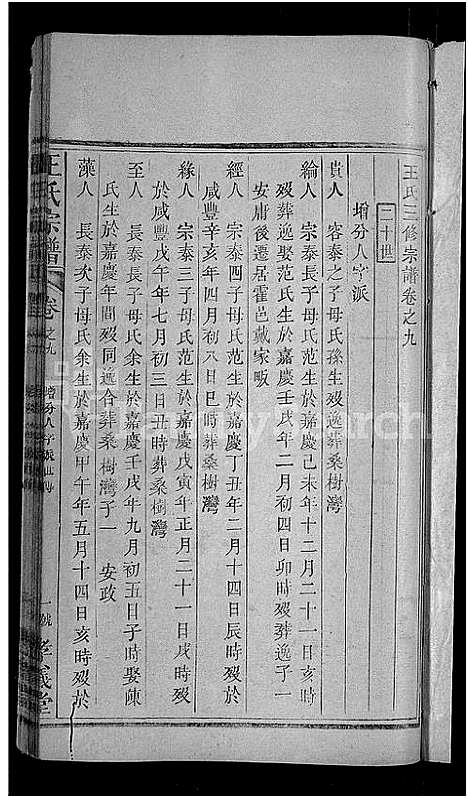 王氏三修宗譜卷之九
二十世
增分人字派
貴人　容泰之子母氏孫生歿逸葬桑樹灣
綸人　宗泰長子母氏范生於嘉慶己未年十二月二十一日亥時
歿葬逸娶范氏生於嘉慶壬戌年二月初四日卯時歿葬逸子一
安庸後遷居霍邑戴家畈
經人　宗泰四子母氏范生於嘉慶丁丑年二月十四日辰時歿於
咸豐辛亥年四月初八日巳時葬桑樹灣
緣人　宗泰三子母氏范生於嘉慶戊寅年正月二十一日戌時歿
於咸豐戊午年七月初三日丑時葬桑樹灣
至人　長泰長子母氏余生於嘉慶壬戌年九月初五日子時娶陳
氏生於嘉慶年間歿同逸合葬桑樹灣子一　安政
藻人　長泰次子母氏余生於嘉慶甲午年五月十四日亥時歿於
王氏宗譜　卷之九　增分人字派　一號　孝義堂